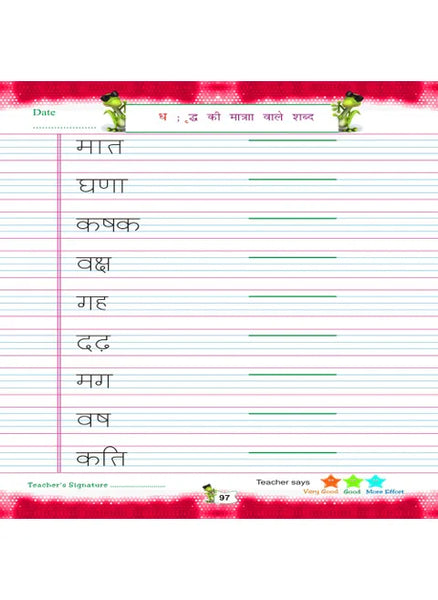 Date
....................
ध ; ृद्ध की मात्राा वाले शब्द
मात
घणा
कषक
वक्ष
गह
दढ़
मग
वष
कति
Teacher's Signature ......................
97
Teacher says
Very Good Good More Effort